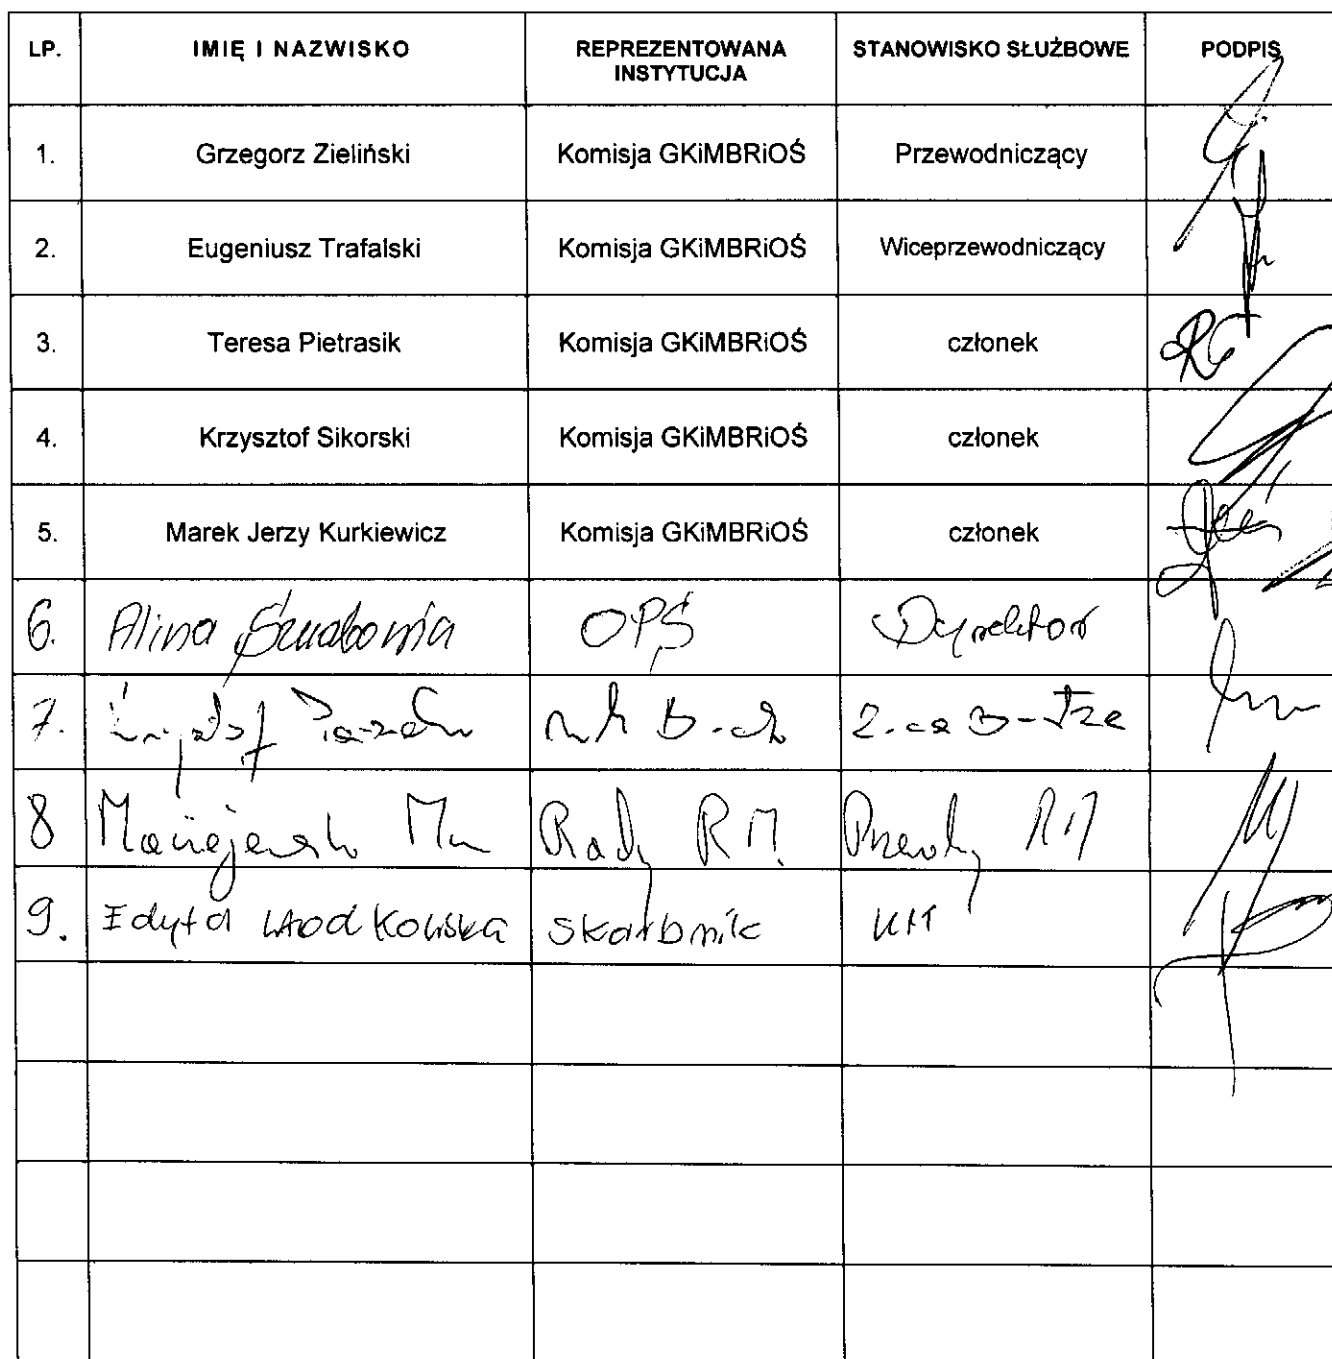 LP. IMIĘ I NAZWISKO REPREZENTOWANA INSTYTUCJA STANOWISKO SŁUŻBOWE PODPIS
1. Grzegorz Zieliński Komisja GKiMBRiOŚ Przewodniczący
2. Eugeniusz Trafalski Komisja GKiMBRiOŚ Wiceprzewodniczący
3. Teresa Pietrasik Komisja GKiMBRiOŚ członek
4. Krzysztof Sikorski Komisja GKiMBRiOŚ członek
5. Marek Jerzy Kurkiewicz Komisja GKiMBRiOŚ członek
6. Alina OPS Dyrektor
7.
8 Rady R.M. RM
9. Edyta skarbnik UM